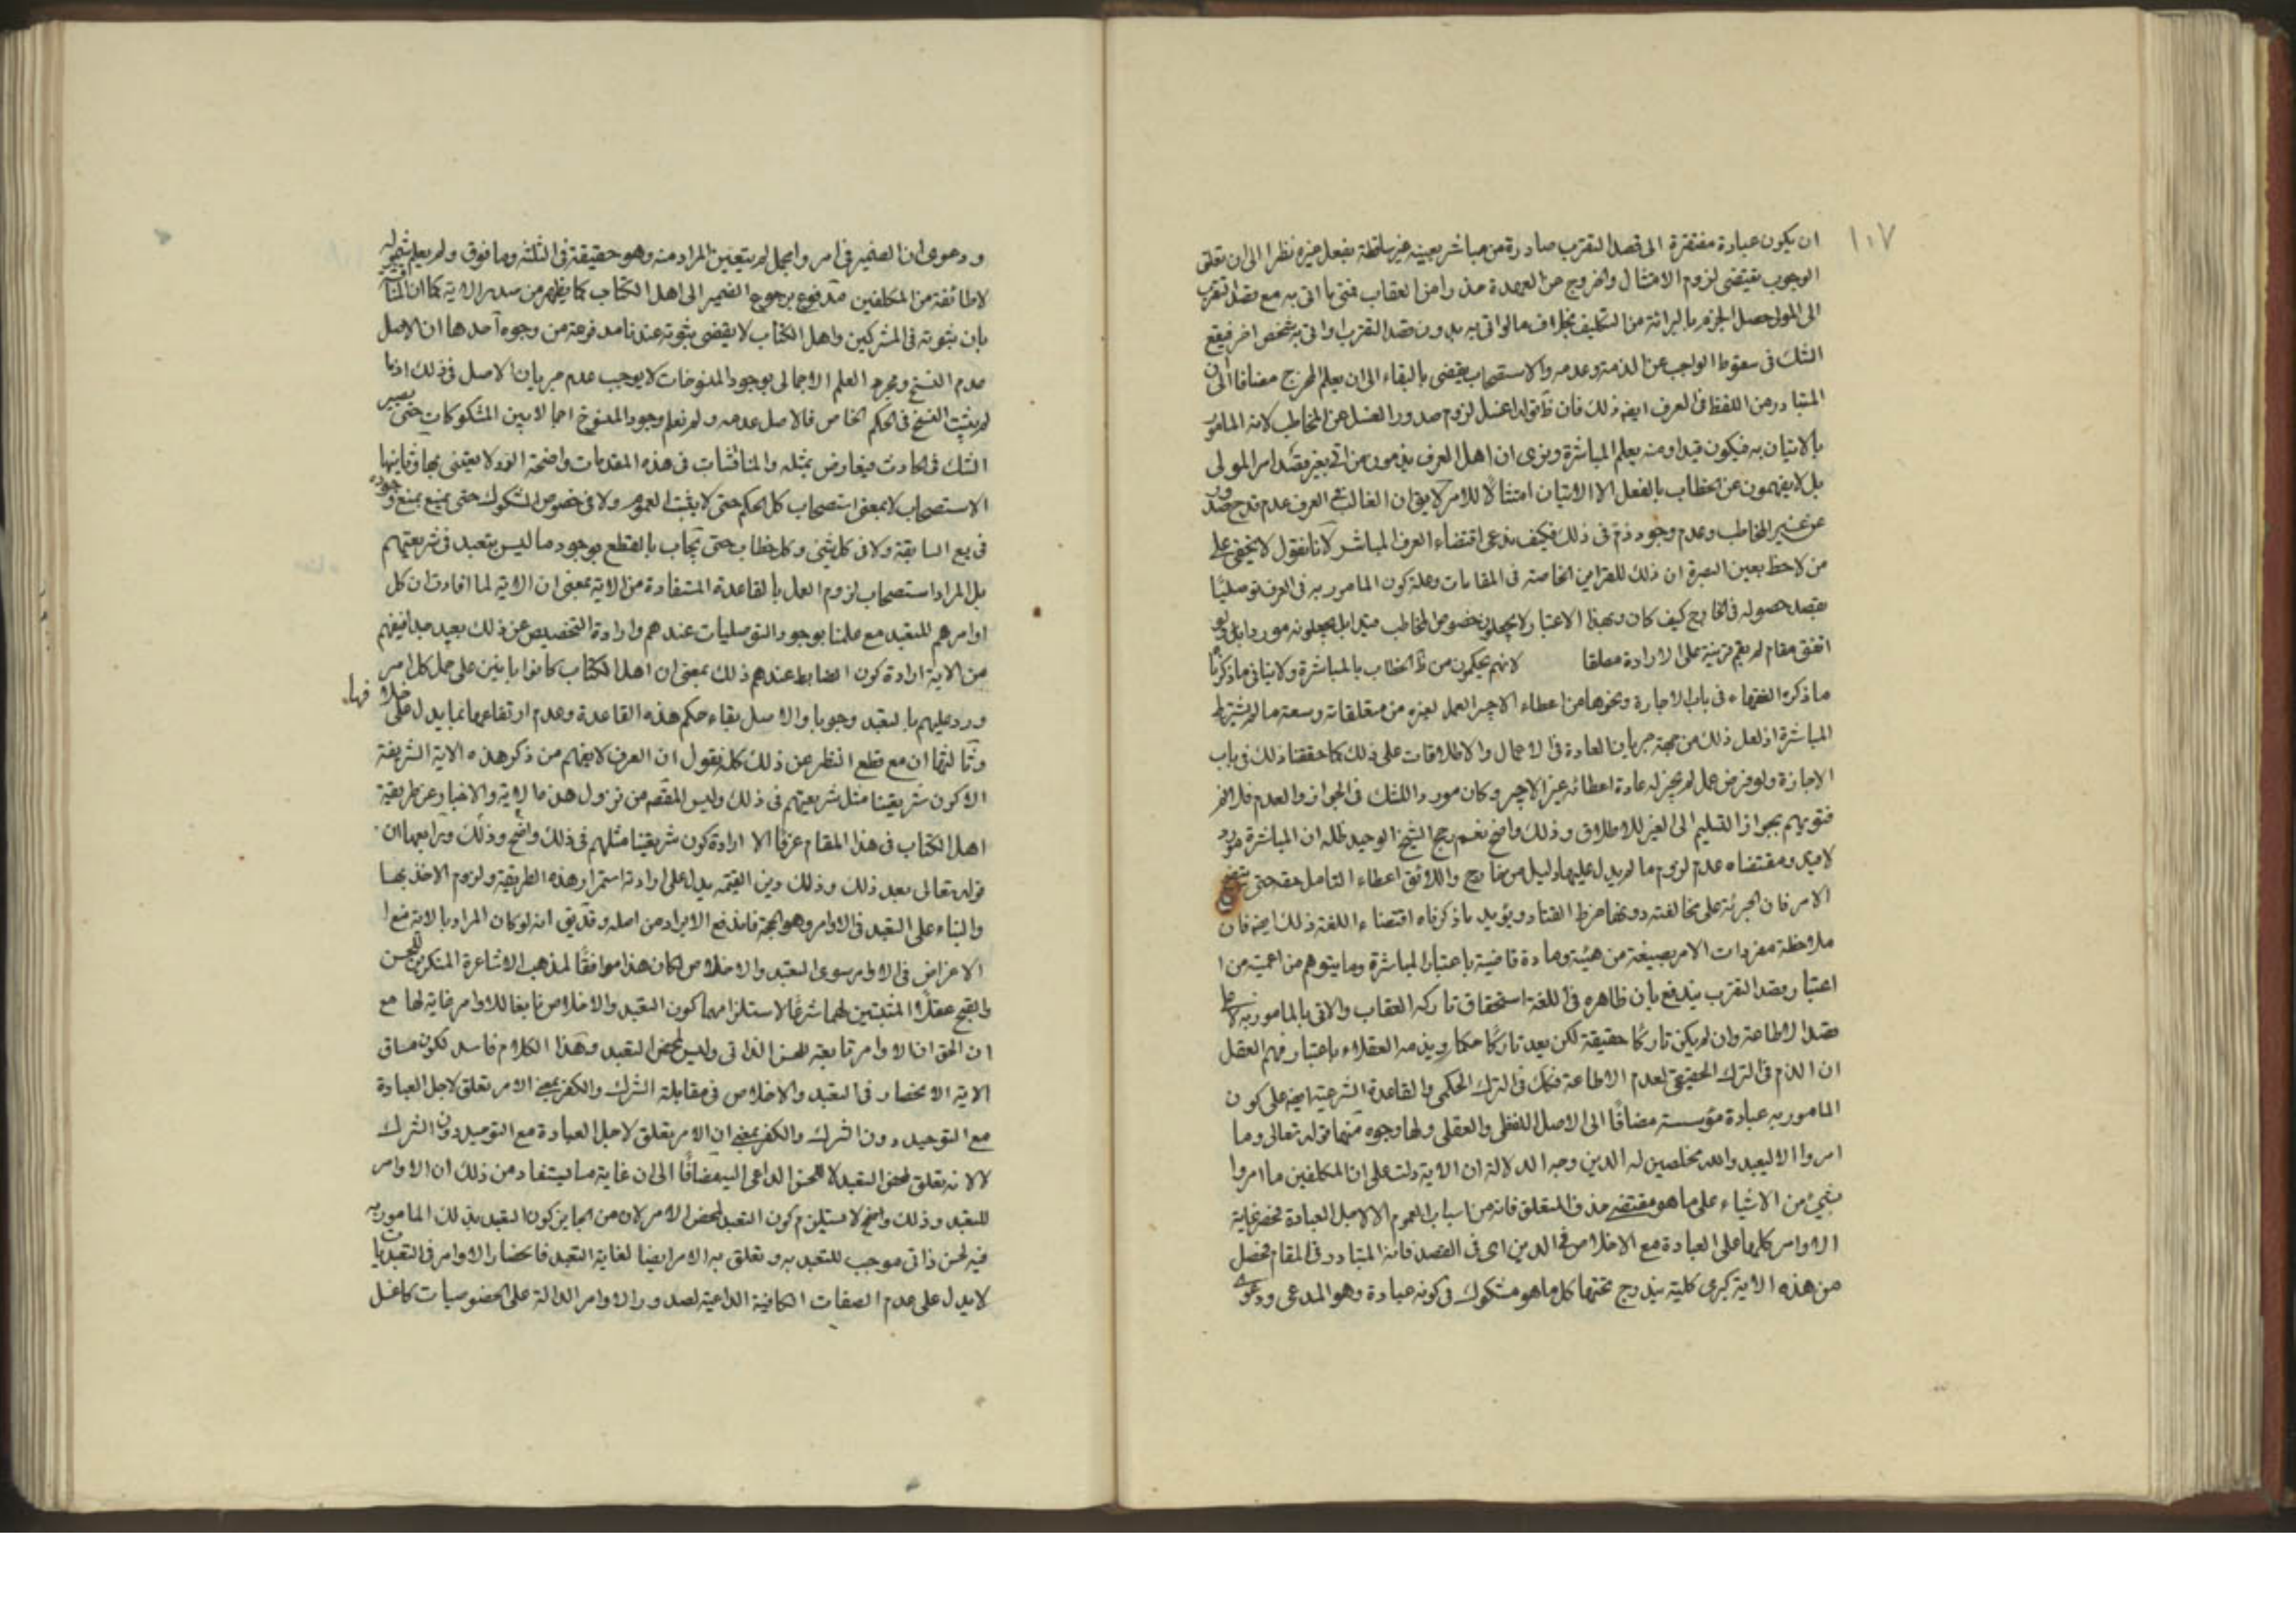 ١٠٧
ان يكون عبادة مفتقرة الى قصد التقرب صادرة من مباشر بعينه غير ساقطة بفعل غيره نظرا الى ان تعلق
الوجوب يقتضى لزوم الامتثال والخروج عن العهدة حذرا من العقاب فمتى ما اتى به مع قصد التقرب
الى المولى حصل الجزم بالبرائة من التكليف بخلاف ما لو اتى به بدون قصد التقرب او اتى به شخص اخر فيقع
الشك فى سقوط الواجب عن الذمة وعدمه والاستصحاب يقتضى بالبقاء الى ان يعلم المخرج مضافا الى ان
المتبادر من اللفظ فى العرف ايضه ذلك فان ظ قوله اغسل لزوم صدور الغسل عن المخاطب لانه المامور
بالاتيان به فيكون قيدا ومنه يعلم المباشرة ونرى ان اهل العرف يذمون من اتى بغير قصد امر المولى
بل لا يفهمون عن الخطاب بالفعل الا الاتيان امتثالا للامر لا يق ان الغالب فى العرف عدم قدح صدور
عن غير المخاطب وعدم وجود ذم فى ذلك فكيف يدعى اقتضاء العرف المباشر لانا نقول لا يخفى على
من لاحظ بعين البصيرة ان ذلك للقراين الخاصة فى المقامات وعلة كون المامور به فى العرف توصليا
يقصد حصوله فى الخارج كيف كان وبهذا الاعتبار لا يجعلون خصوص المخاطب قيدا بل يجعلونه موردا بل لو
اتفق مقام لم يقم قرينة على الارادة مطلقا لانهم يحكمون من ظ الخطاب بالمباشرة ولا ينافى ما ذكرنا
ما ذكره الفقهاء فى باب الاجارة ونحوها من اعطاء الاجير العمل لغيره من متعلقاته وسعته ما لم يشترط
المباشرة اذ لعل ذلك من جهة جريان العادة فى الاعمال والاطلاقات على ذلك كما حققنا ذلك فى باب
الاجازة ولو فرض عمل لم يجز له عادة اعطائه غير الاجير وكان موردا للشك فى الجواز والعدم فلا
فتويهم بجواز التسليم الى الغير للاطلاق وذلك واضح نعم رجح الشيخ الوحيد ظله ان المباشرة مورد
لا قيد ومقتضاه عدم لزوم ما لم يدل عليها دليل من خارج واللائق اعطاء التامل حقه حتى يتضح
الامر فان الجرئة على مخالفته دونها خرط القتاد ويؤيد ما ذكرناه اقتضاء اللغة ذلك ايضه فان
ملاحظة مفردات الامر بصيغة من هيئة ومادة قاضية باعتبار المباشرة وما يتوهم من اعميته من
اعتبار قصد التقرب يندفع بان ظاهره فى اللغة استحقاق تاركه العقاب والاتى بالمامور به لا
قصد الاطاعة وان لم يكن تاركا حقيقة لكن يعد تاركا حكما ويذمه العقلاء باعتبار فهم العقل
ان الذم فى الترك الحقيقى لعدم الاطاعة فكك فى الترك الحكمى والقاعدة الشرعية ايضه على كون
المامور به عبادة مؤسسة مضافا الى الاصل اللفظى والعقلى ولها وجوه منها قوله تعالى وما
امروا الا ليعبد والله مخلصين له الدين وجه الدلالة ان الاية دلت على ان المكلفين ما امروا
بشيئ من الاشياء على ما هو مقتضى حذف المتعلق فانه من اسباب العموم الا لاجل العبادة فحصر غاية
الاوامر كلها على العبادة مع الاخلاص فى الدين اى فى القصد فانه المتبادر فى المقام فحصل
من هذه الاية كبرى كلية يندرج تحتها كل ما هو مشكوك فى كونه عبادة وهو المدعى ودعوى
ودعوى ان الضمير فى امروا مجمل لم يتعين المراد منه وهو حقيقة فى الثلثة وما فوق ولم يعلم شموله
لاطائفة من المكلفين مدفوع برجوع الضمير الى اهل الكتاب كما يظهر من صدر الاية كما ان
بان ثبوته فى المشركين واهل الكتاب لا يقضى بثبوته عندنا مدفوعة من وجوه احدها ان الاصل
عدم النسخ ومجرد العلم الاجمالى بوجود المنسوخات لا يوجب عدم جريان الاصل فى ذلك اذ ما
لم يثبت النسخ فى الحكم الخاص فالاصل عدمه ولم نعلم وجود المنسوخ اجمالا بين المشكوكات حتى يصير
الشك فى الحادث فيعارض بمثله والمناقشات فى هذه المقدمات واضحة الورود لا يعتنى بها وثانيها
الاستصحاب لا بمعنى استصحاب كل الحكم حتى لا يثبت العموم ولا فى خصوص المشكوك حتى يمنع بمنع وجوده
فى بيع السابقة ولا فى كل شئ وكل خطاب حتى يجاب بالقطع بوجود ما ليس بتعبد فى شريعتهم
بل المراد استصحاب لزوم العمل بالقاعدة المستفادة من الاية بمعنى ان الاية لما افادت ان كل
اوامرهم للتعبد مع علمنا بوجود التوصليات عندهم وارادة التخصيص عن ذلك بعيد جدا فيفهم
من الاية ارادة كون الضابط عندهم ذلك بمعنى ان اهل الكتاب كانوا بانين على حمل كل امر
ورد عليهم بالتعبد وجوبا والاصل بقاء حكم هذه القاعدة وعدم ارتفاعها بما يدل على خلافها
وثالثها ان مع قطع النظر عن ذلك كله نقول ان العرف لا يفهم من ذكر هذه الاية الشريفة
الا كون شريعتنا مثل شريعتهم فى ذلك وليس المقصد من نزول هذه الاية والاخبار عن طريقة
اهل الكتاب فى هذا المقام عرفا الا ارادة كون شريعتنا مثلهم فى ذلك واضح وذلك ورابعها ان
قوله تعالى بعد ذلك وذلك دين القيمة يدل على ارادة استمرار هذه الطريقة ولزوم الاخذ بها
والبناء على التعبد فى الاوامر وهو الحجة فاندفع الايراد من اصله وقد يق انه لو كان المراد بالاية
الاعراض فى الاوامر سوى التعبد والاخلاص لكان هذا موافقا لمذهب الاشاعرة المنكرين للحسن
والقبح عقلا المثبتين لهما شرعا لاستلزامهما كون التعبد والاخلاص تابعا للاوامر غاية لها مع
ان الحق ان الاوامر تابعة للحسن الذاتى وليس لمحض التعبد وهذا الكلام فاسد لكون مساق
الاية الانحصار فى التعبد والاخلاص فى مقابلة الشرك والكفر بمعنى الامر تعلق لاجل العبادة
مع التوحيد دون الشرك والكفر بمعنى ان الامر تعلق لاجل العبادة مع التوحيد دون الشرك
لا لانه تعلق لمحض التعبد لا للحسن الداعى اليه مضافا الى ان غاية ما يستفاد من ذلك ان الاوامر
للتعبد وذلك واضح لا يستلزم كون التعبد لمحض الامر لان من الجايز كون التعبد بذلك المامور به
فيه لحسن ذاتى موجب للتعبد به وتعلق به الامر ايضا لغاية التعبد فانحصار الاوامر فى التعبديات
لا يدل على عدم الصفات الكافية الداعية لصدور الاوامر الدالة على الخصوصيات كاغسل